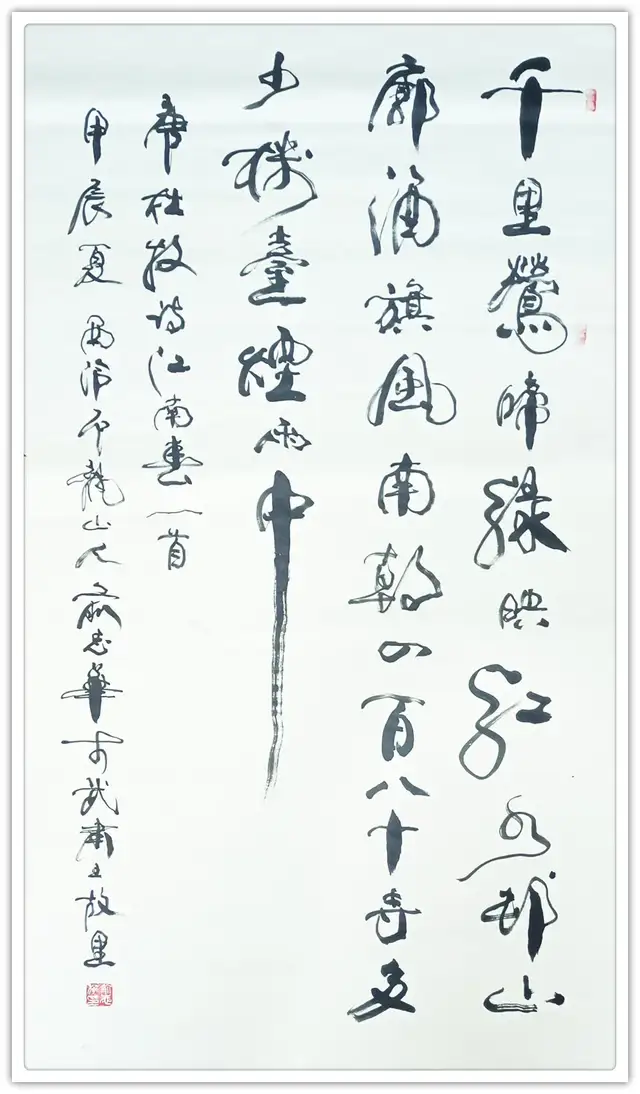 千里鶯啼緑映紅水邨山
廓酒旗風南朝四百八十寺多
少樓臺煙雨中
唐杜牧詩江南春一首
甲辰夏西泠龍山人忠華於武肅王故里